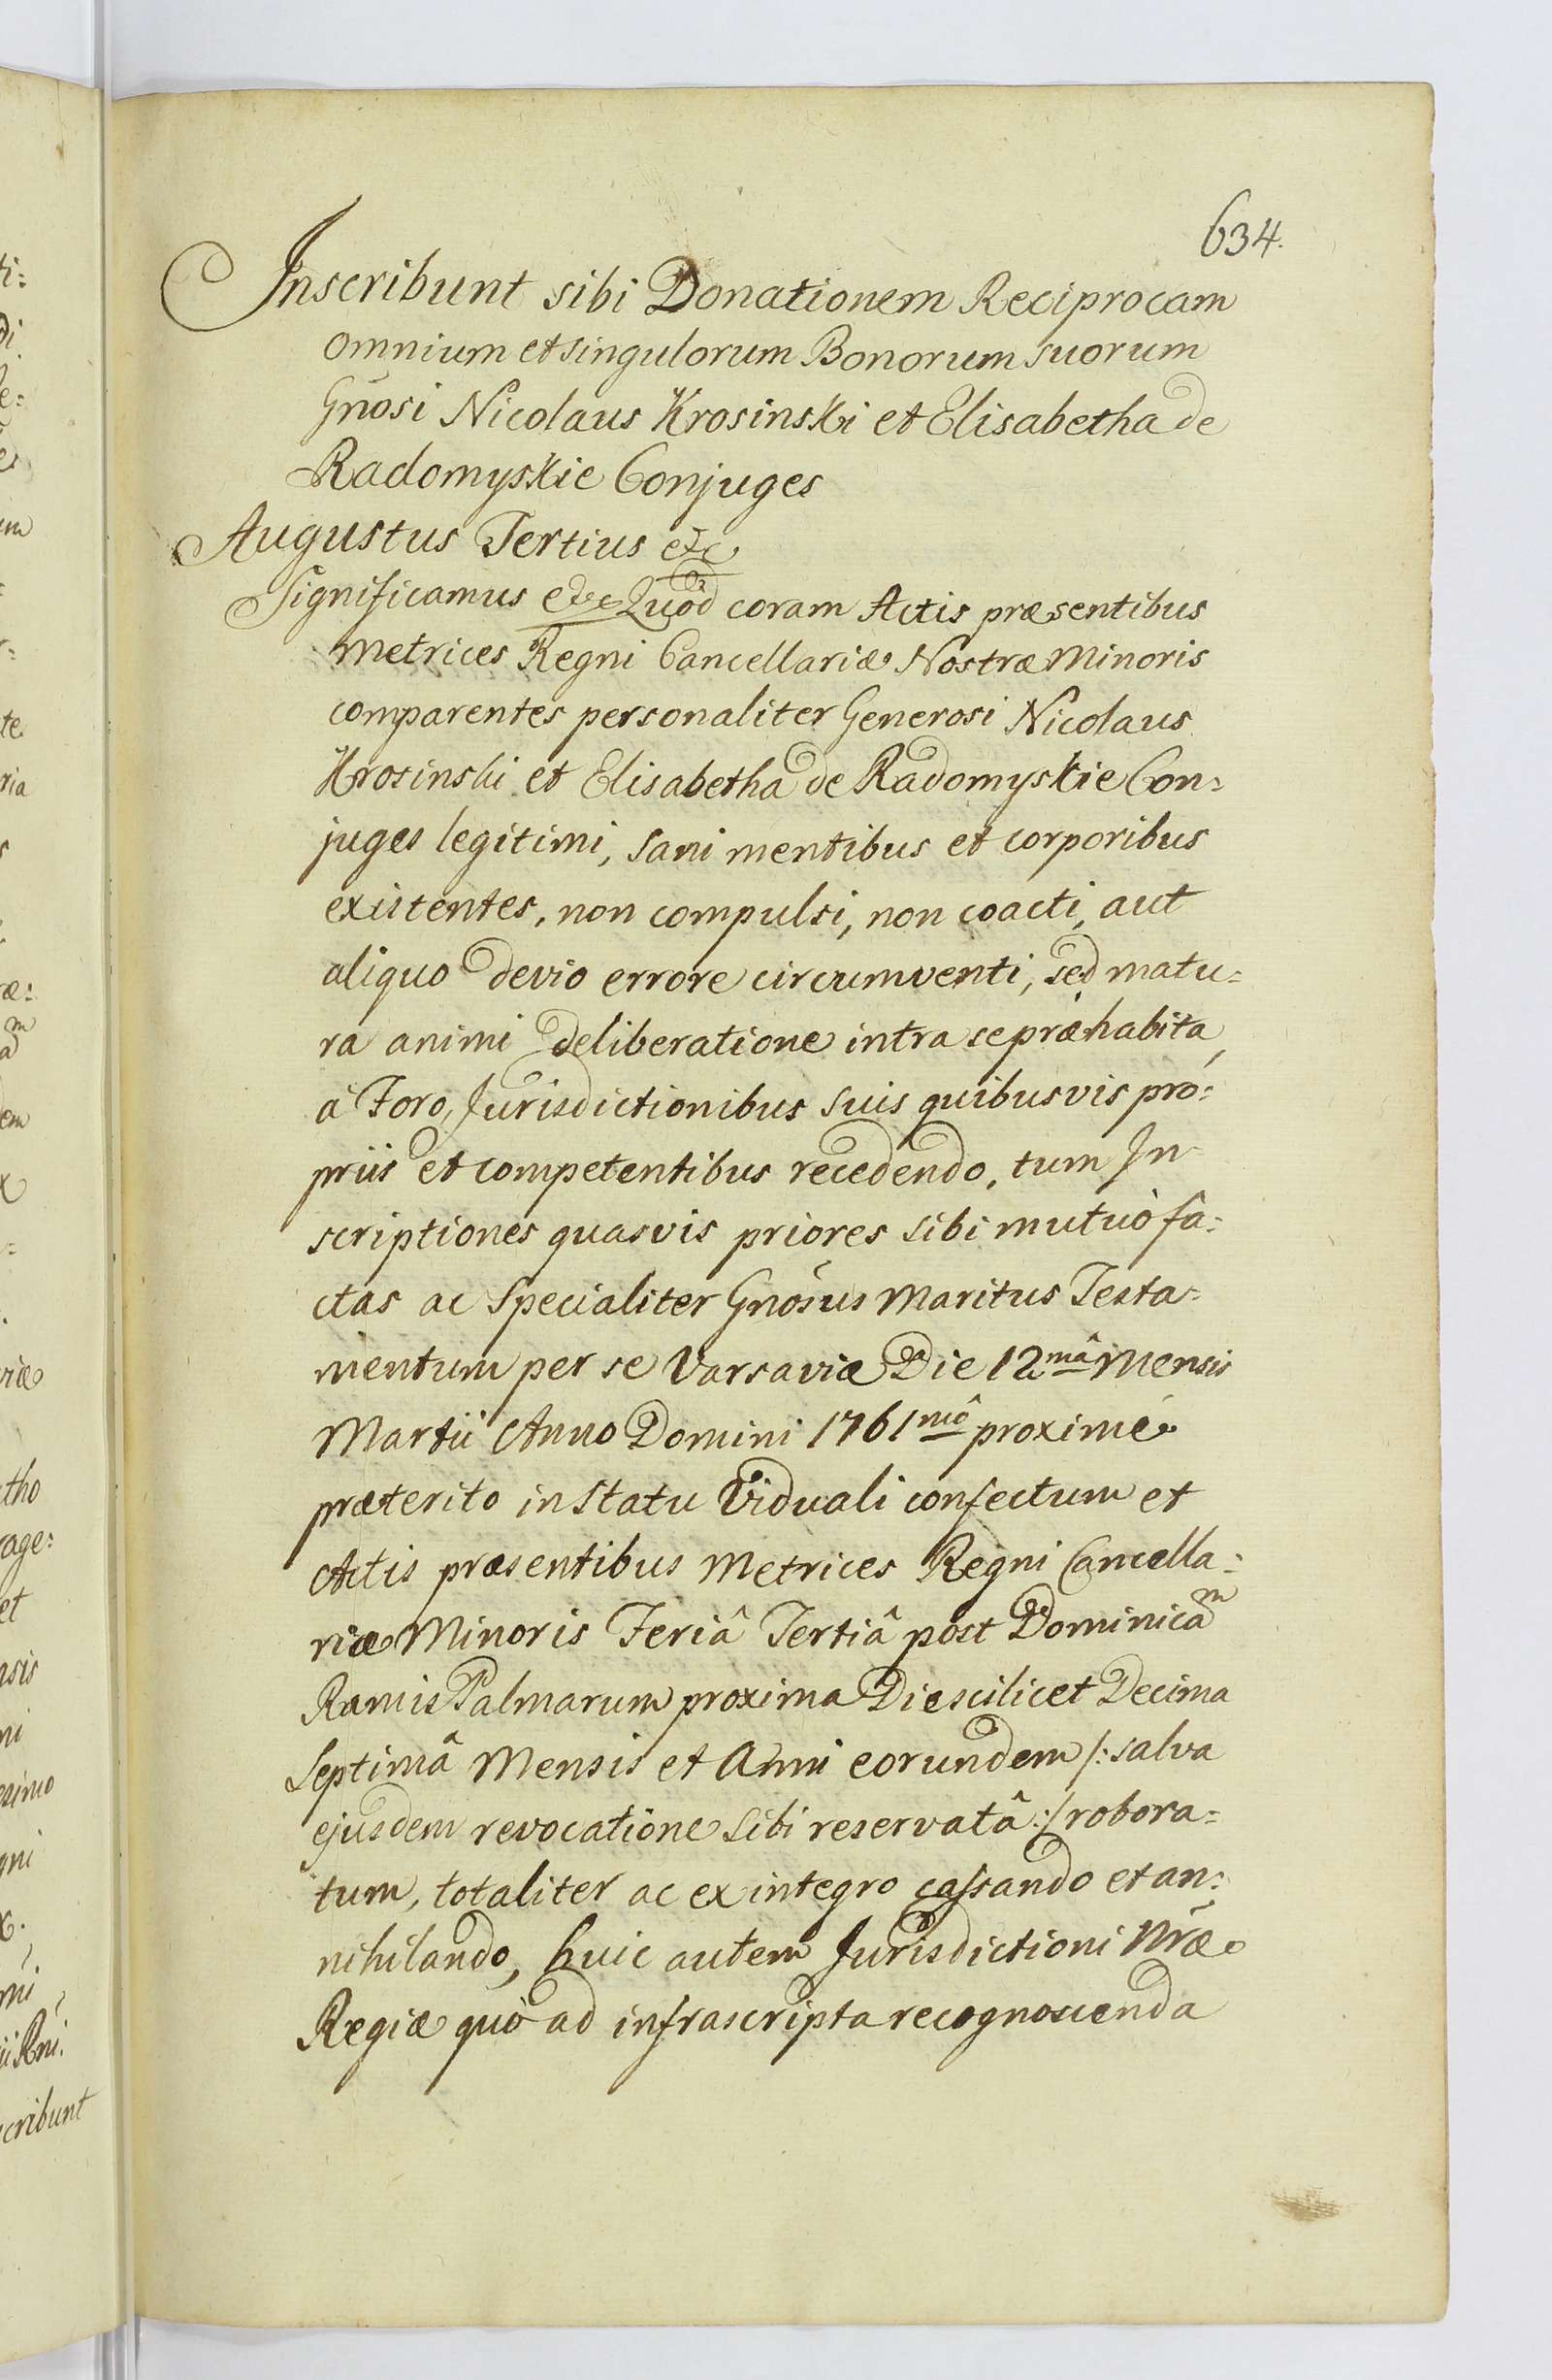 634.
Inscribunt sibi Donationem Reciprocam
omnium et singulorum Bonorum suorum
Gnosi Nicolaus Krosinski et Elisabetha de
Radomyskie Conjuges
Augustus Tertius etc
Significamus etc Quod coram Actis præsentibus
Metrices Regni Cancellariæ Nostræ Minoris
comparentes personaliter Generosi Nicolaus
Krosinski et Elisabetha de Radomyskie Con:
juges legitimi, sani mentibus et corporibus
existentes, non compulsi, non coacti, aut
aliquo devio errore circumventi, sed matu:
ra animi deliberatione intra se præhabita,
à Foro, Jurisdictionibus suis quibusvis pro:
priis et competentibus recedendo, tum In
scriptiones quasvis priores sibi mutuò fa:
ctas ac specialiter Gnosus Maritus Testa:
mentum per se Varsaviæ Die 12mâ Mensis
Martii Anno Domini 1761mô proximè
præterito in statu Viduali confectum et
Actis præsentibus Metrices Regni Cancella:
riæ Minoris Feriâ Tertiâ post Dominicam
Ramis Palmarum proxima Die scilicet Decima
Septimâ Mensis et Anni eorundem /: salva
ejusdem revocatione sibi reservatâ :/ robora:
tum, totaliter ac ex integro cassando et an:
nihilando, huic autem Jurisdictioni Nræ
Regiæ quò ad infrascripta recognoscenda
te
ria
em
riæ
tho
age:
et
ni
simo
gni
cribunt